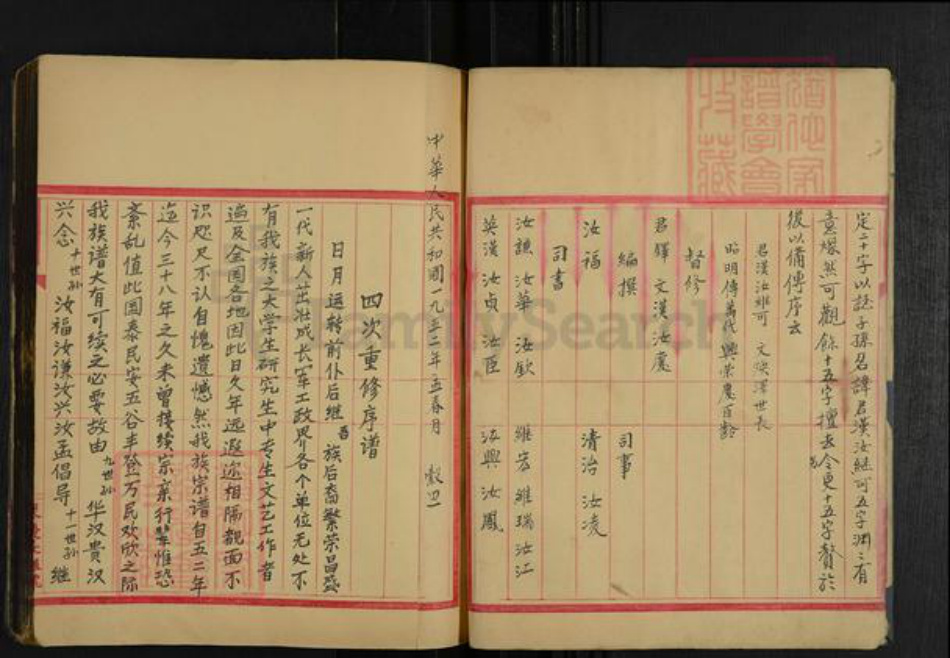 定二十字以誌子孫名諱君漢汝継可五字淵〻有
意燦然可觀餘十五字擅去今更十五字贅於
後以備傳序云
君漢汝継可 文煥澤世長
昭明傳萬代 興榮慶百齡
督修
君鐸 文漢 汝慶
編撰
汝福 清治 汝凌
司書 司事
汝譙 汝華 汝欽 維宏 維瑞 汝江
英漢 汝貞 汝臣 汝興 汝鳳
中華人民共和國一九五二年五春月 穀旦
四次重修序谱
日月运转前仆后继吾族后裔繁荣昌盛
一代新人茁壮成长军工政界各个单位无处不
有我族之大学生研究生中专生文艺工作者
遍及全国各地因此日久年远遐迩相隔觌面不
识咫尺不认自愧遗憾然我族宗谱自五二年
迄今三十八年之久未曾接续宗亲行辈惟恐
紊乱值此国泰民安五谷丰登万民欢欣之际
我族谱大有可续之必要故由九世孙华汉贵汉
兴念十世孙汝福汝谦汝兴汝孟倡导十一世孙继
譜學會
收藏
FamilySearch